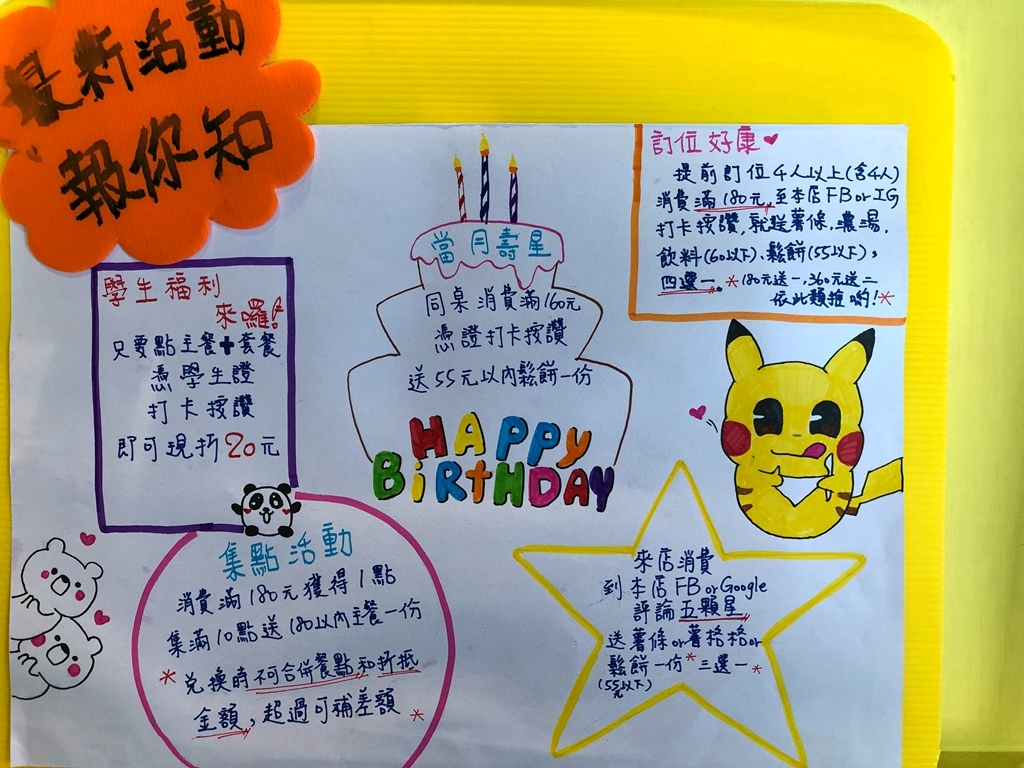 最新活動
報你知
學生福利
來囉!
只要點主餐+套餐
憑學生證
打卡按讚
即可現折20元
當月壽星
同桌消費滿160元
憑證打卡按讚
送55元以內鬆餅一份
HAPPY
BiRtHDAY
訂位好康
提前訂位4人以上(含4人)
消費滿180元,至本店FB or IG
打卡按讚,就送薯條.濃湯.
飲料(60以下).鬆餅(55以下),
四選一。*180元送一.360元送二
依此類推喲!*
集點活動
消費滿180元獲得1點
集滿10點送180以內主餐一份
*兌換時不可合併餐點和折抵
金額,超過可補差額*
來店消費
到本店FB or Google
評論五顆星
送薯條or薯格格or
鬆餅一份*三選一*
(55元以下)